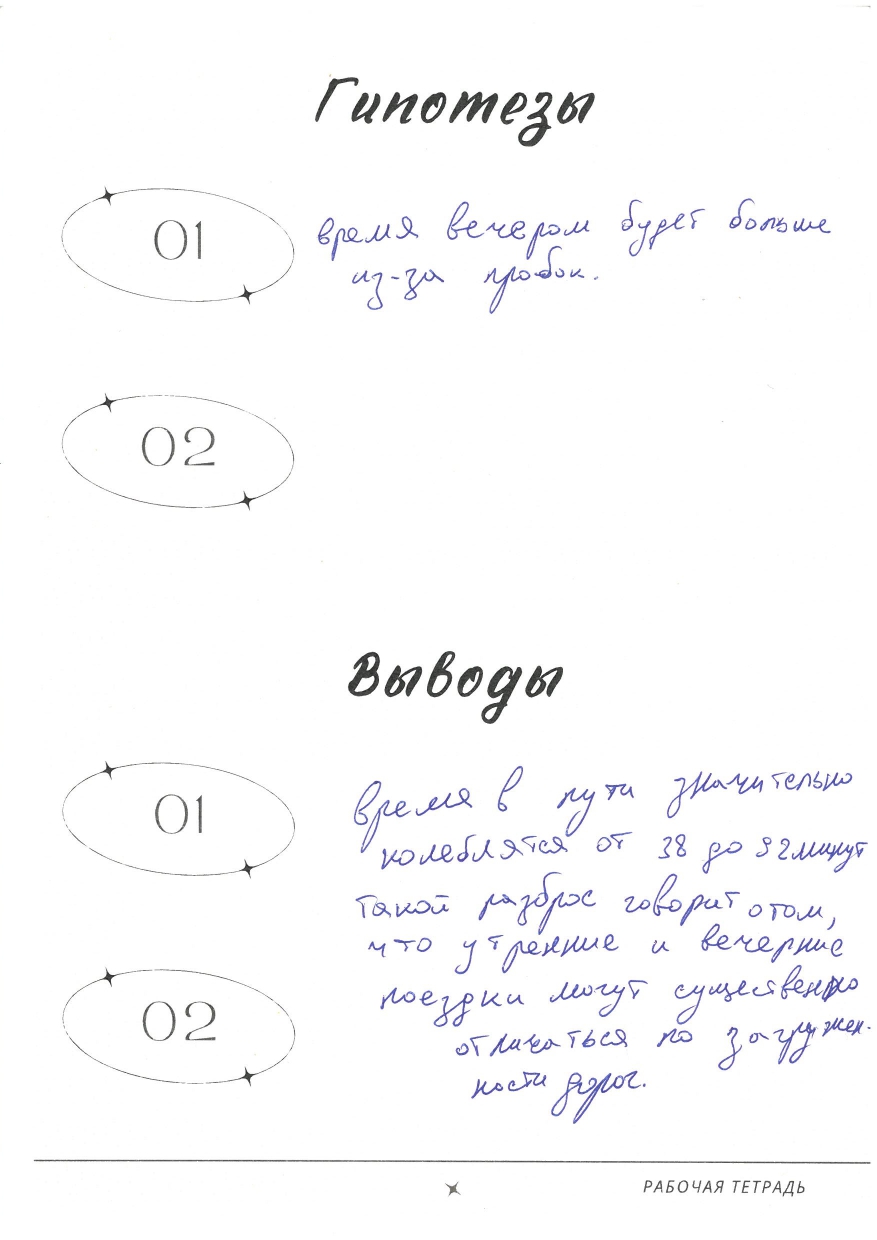 Гипотезы
01
время вечером будет больше
из-за пробок.
02
Выводы
01
время в пути значительно
колеблятся от 38 до 92 минут
такой разброс говорит о том,
что утренние и вечерние
02
поездки могут существенно
отличаться по загружен-
ности дорог.
РАБОЧАЯ ТЕТРАДЬ